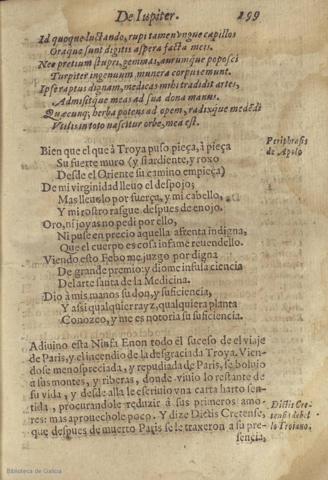 De Iupiter. 299
Id quoque luctando, rupi tamen vngue capillos
Oraque sunt digitis aspera facta meis.
Nec pretium stupri, gemmas, aurumque poposci
Turpiter ingenuum, munera corpus emunt.
Ipse raptus dignam, medicas mihi tradidit artes,
Admisitque meas ad sua dona manus.
Quæcunq; herba potens ad opem, radixque medēdi
Vtilis in toto nascitur orbe, mea est.
Periphrasis
de Apolo
Bien que el que à Troya puso pieça, à pieça
Su fuerte muro (y si ardiente, y roxo
Desde el Oriente su camino empieça)
De mi virginidad lleuo el despojo;
Mas lleuolo por fuerça, y mi cabello,
Y mi rostro rasgue despues de enojo.
Oro, ni joyas no pedi por ello,
Ni puse en precio aquella afrenta indigna,
Que el cuerpo es cosa infame reuendello.
Viendo esto Febo me juzgo por digna
De grande premio: y diome infusa ciencia
Del arte santa de la Medicina.
Dio à mis manos su don, y suficiencia,
Y assi qualquier rayz, qualquiera planta
Conozco, y me es notoria su suficiencia.
Adiuino esta Ninfa Enon todo el suceso de el viaje
de Paris, y el incendio de la desgraciada Troya. Vien-
dose menospreciada, y repudiada de Paris, se boluio
a sus montes, y riberas, donde viuio lo restante de
su vida, y desde alla le escriuio vna carta harto sen-
tida, procurandole reduzir à sus primeros amo-
res: mas aprouechole poco. Y dize Dictis Cretense,
que despues de muerto Paris se le traxeron a su pre-
sencia,
Dictis Cre-
tensis de bel
lo Troiano,
Biblioteca de Galicia